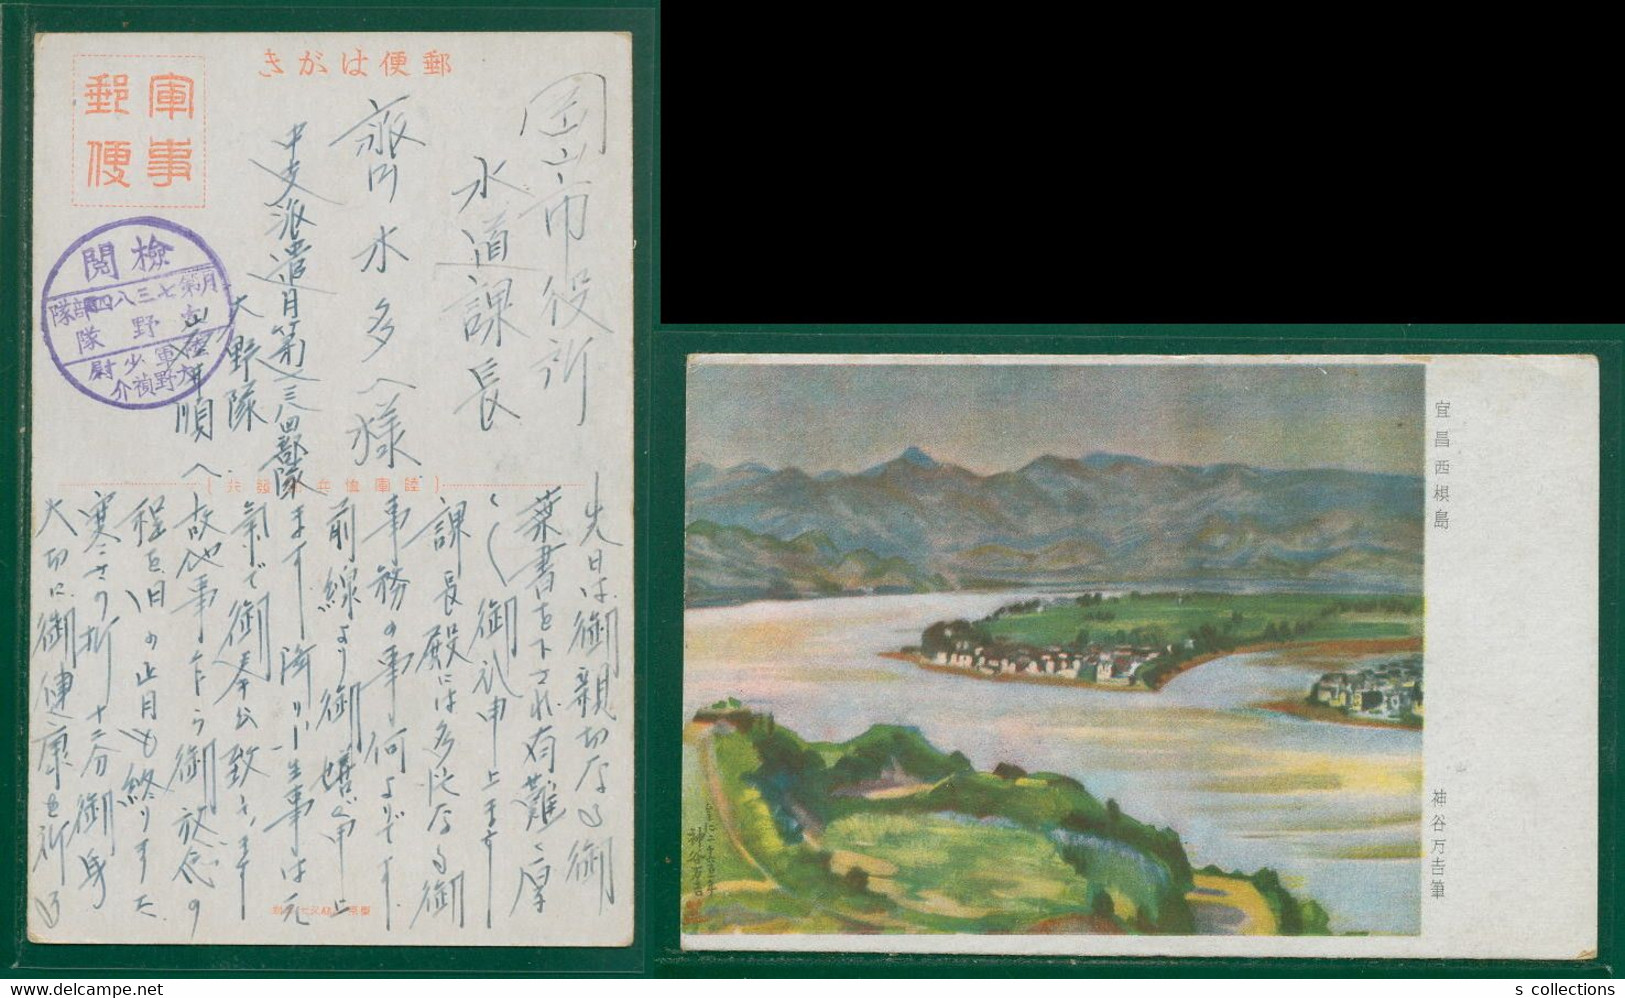 郵便はがき
軍事
郵便
岡山市役所
水道課長
水多八様
中支派遣月第七三八四部隊
大野隊
検閲
月第七三八四部隊
大野隊
陸軍少尉
大野禎介
先日は御親切なる御
葉書を下され有難く厚
く〱御礼申上ます
課長殿には多忙なる御
事務の事何よりです
前線より御喜び申上
ます 降リテ生事は元
氣で御奉公致します
故他事乍ら御放念の
程を 目の正月も終りました
寒さの折 十二分御身
大切に御健康を祈る
宜昌西椇島
神谷万吉筆
神谷万吉
s collections